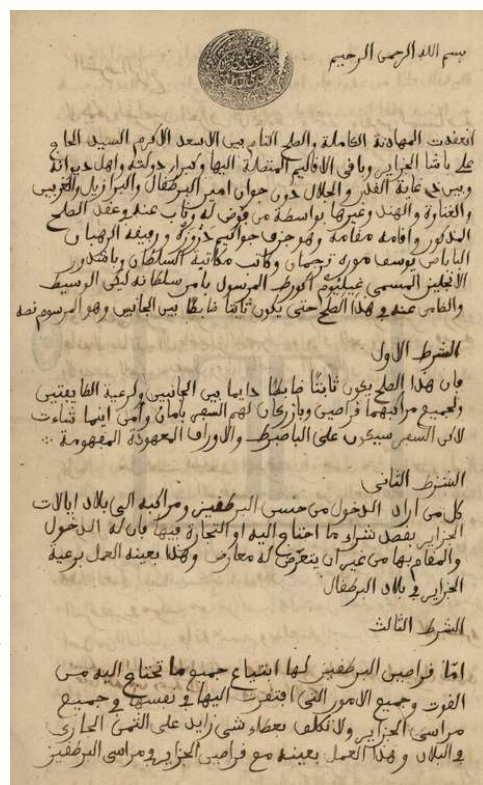 بسم الله الرحمن الرحيم
انعقدت المهادنة الكاملة والصلح التام بين الاسعد الاكرم السيد الحاج
علي باشا الجزاير وباقي الاقاليم المتصلة اليها وكبراء دولته واهل ديوانه
وبين ذي غاية القدر والجلال دون جوان امير البرطقال والبرازيل والغربين
والهند وغيرها بواسطة من فوض له وناب عنه وعقد الصلح
المذكور واقامه مقامه وهو جزف جواكيم ورفيقه الرهبان
الباباص يوسف موره ترجمان وكاتب مكاتبة السلطان وباشدور
الانجليز المسمى غييليوم اكورط المرسول بامر سلطانه ليكن الوسيط
والضامن عنه في هذا الصلح حتى يكون ثابتا ضابطا بين الجانبين وهو المرسوم نصه
الشرط الاول
فان هذا الصلح يكون ثابتا ضابطا دايما بين الجانبين ولرعية الطايفتين
ولجميع مراكبهما قراصين وبازركان لهم السفر بامان وامن اينما شاءت
لاكن السفر سيكون على الباصبرط والاوراق المعهودة المفهومة
الشرط الثاني
كل من اراد الدخول من جنس البرطقيز ومراكبه الى بلاد ايالات
الجزاير بقصد شراء ما احتاج اليه او التجارة فيها فان له الدخول
والمقام بها من غير ان يتعرض له معارض وهذا بعينه العمل برعية
الجزاير في بلاد البرطقال
الشرط الثالث
اما قراصين البرطقيز لها ابتياع جميع ما تحتاج اليه من
القوت وجميع الامور التي افتقرت اليها في نفسها في جميع
مراسي الجزاير ولا تكلف بعطاء شي زايد على الثمن الجاري
في البلاد وهذا العمل بعينه مع قراصين الجزاير في مراسي البرطقيز